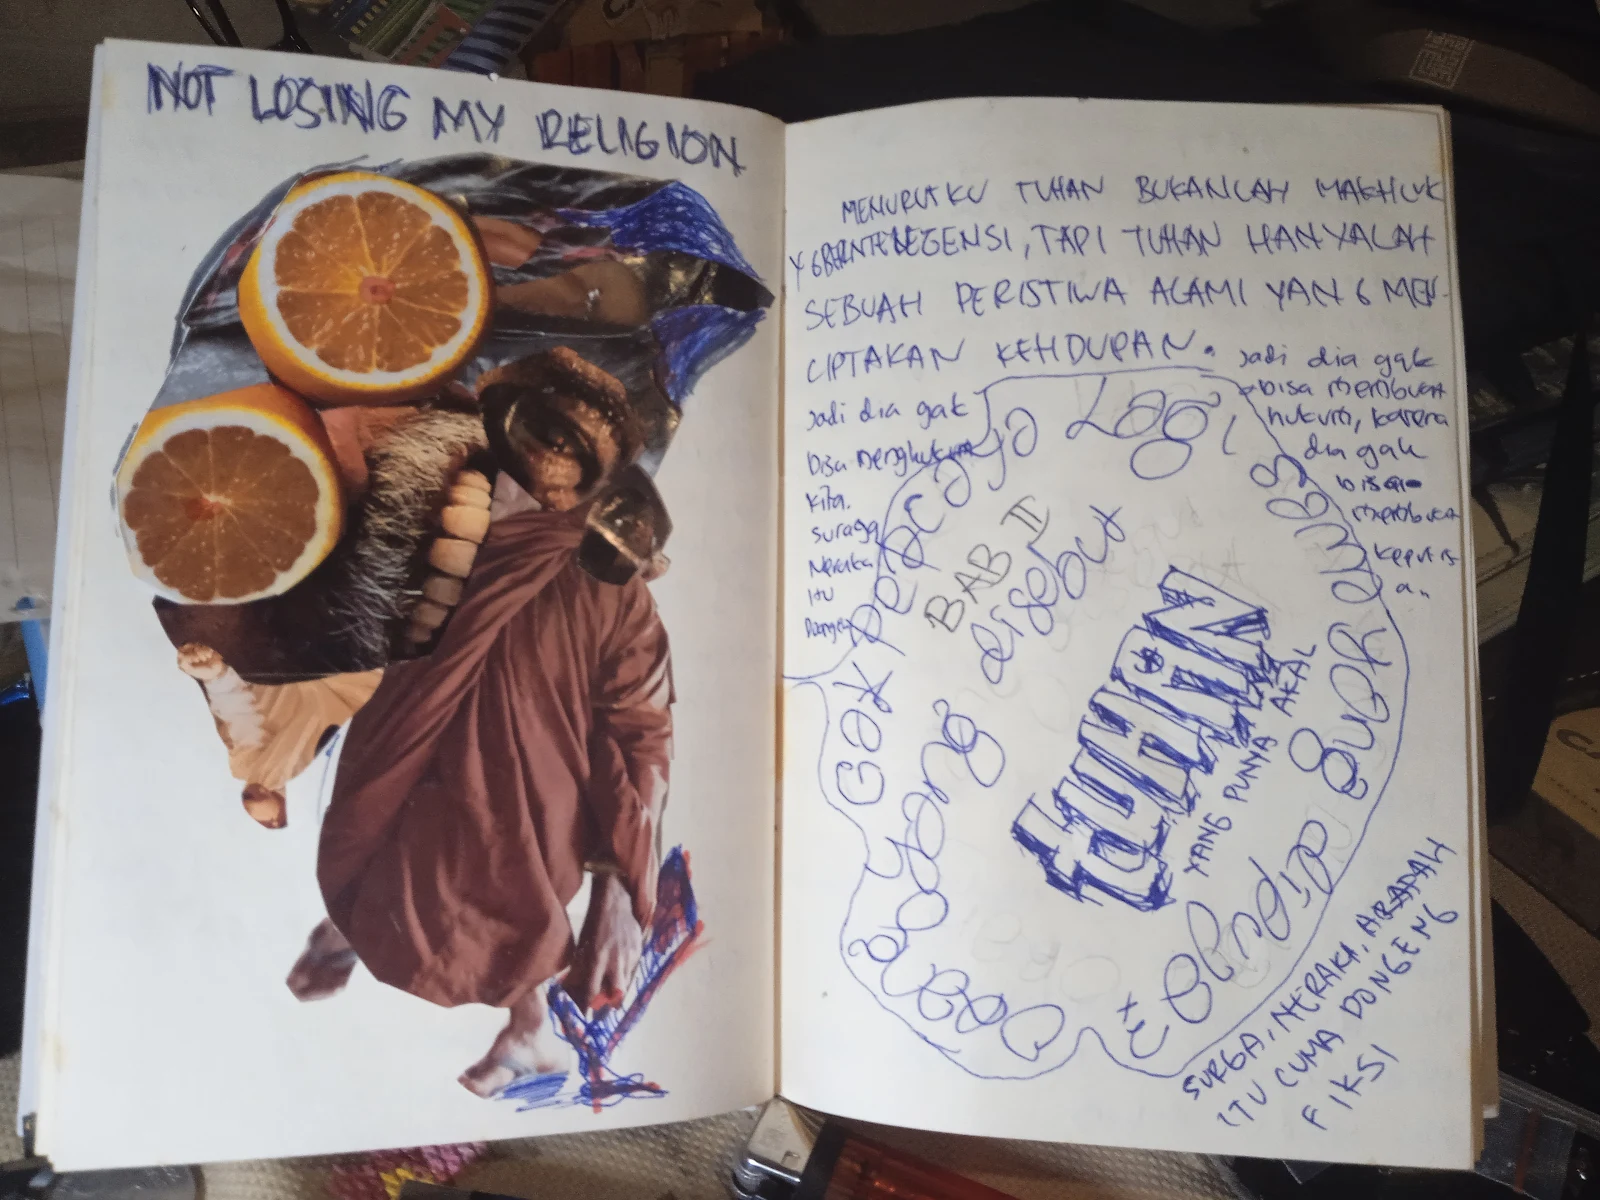 NOT LOSING MY RELIGION
MENURUTKU TUHAN BUKANLAH MAKHLUK
TAPI TUHAN HANYALAH
SEBUAH PERISTIWA ALAMI YANG MEN-
CIPTAKAN KEHDUPAN.
Jadi dia gak
bisa menghukum
kita.
Suraga
Neraka
itu
Dongeng
Jadi dia gak
bisa membuat
hukum, karena
dia gak
bisa
membuat
Keputus
a..
Gak percaya Lagi
BAB II
yang disebut
tUHAN
YANG PUNYA AKAL
SURGA, NERAKA,
ITU CUMA DONGENG
FIKSI